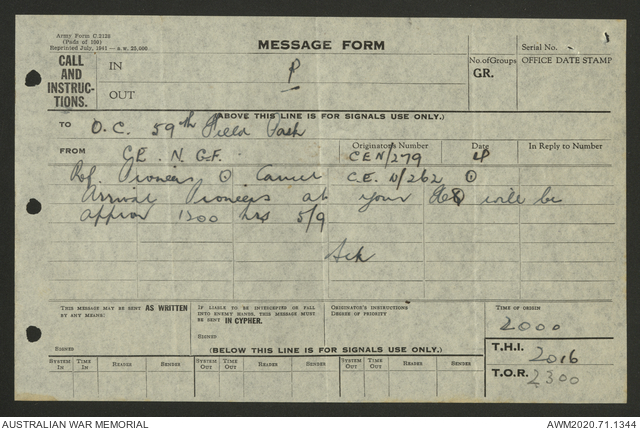 Army Form C.2128
(Pads of 100)
Reprinted July, 1941 — A.W. 25,000
MESSAGE FORM
Serial No.
CALL AND INSTRUC-TIONS.
IN
P
No. of Groups
GR.
OFFICE DATE STAMP
OUT
(ABOVE THIS LINE IS FOR SIGNALS USE ONLY.)
TO O.C. 59th Field Park
FROM CE. N.G.F.
Originator's Number CEN/279
Date 4
In Reply to Number
Ref. Pioneers ⊙ Cancel C.E. N/262 ⊙
Arrival Pioneers at your will be
approx 1200 hrs 5/9
Ack
THIS MESSAGE MAY BE SENT AS WRITTEN BY ANY MEANS:
IF LIABLE TO BE INTERCEPTED OR FALL INTO ENEMY HANDS, THIS MESSAGE MUST BE SENT IN CYPHER.
ORIGINATOR'S INSTRUCTIONS
DEGREE OF PRIORITY
TIME OF ORIGIN
2000
SIGNED
SIGNED
(BELOW THIS LINE IS FOR SIGNALS USE ONLY.)
T.H.I. 2016
SYSTEM IN TIME IN READER SENDER SYSTEM OUT TIME OUT READER SENDER SYSTEM OUT TIME OUT READER SENDER
T.O.R. 2300
AUSTRALIAN WAR MEMORIAL
AWM2020.71.1344